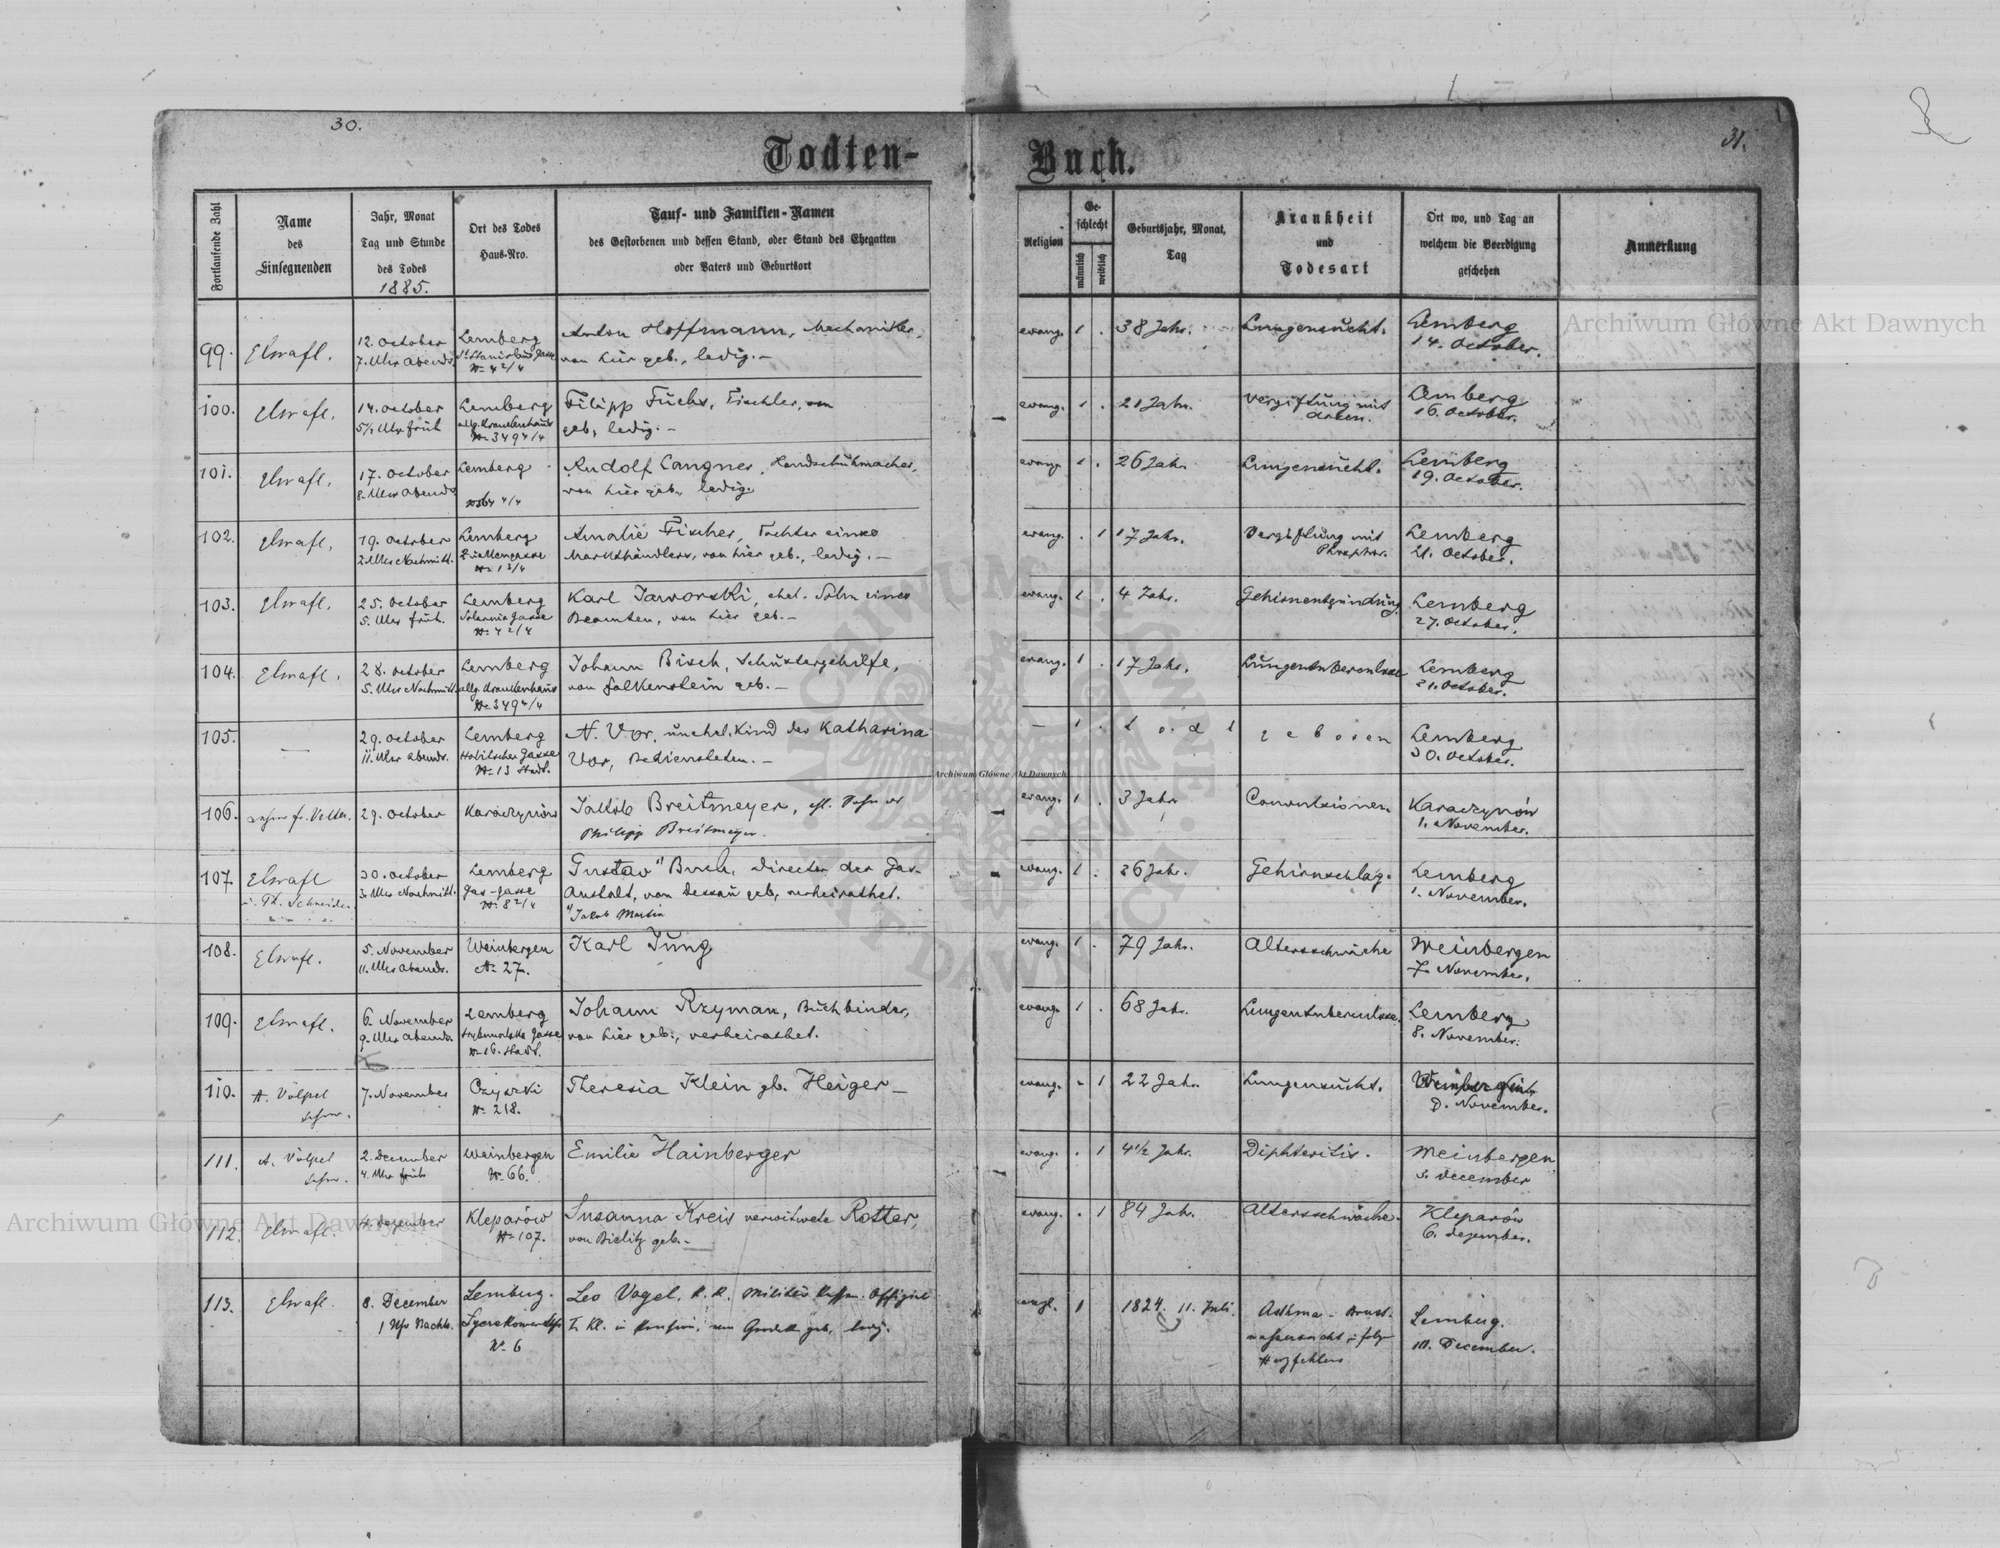 30.
31.
Todten-
Buch.
Fortlaufende Zahl
Name
des
Einsegnenden
Jahr, Monat
Tag und Stunde
des Todes
1885.
Ort des Todes
Haus-Nro.
Tauf- und Familien-Namen
des Gestorbenen und dessen Stand, oder Stand des Ehegatten
oder Vaters und Geburtsort
Religion
Ge-
schlecht
männlich
weiblich
Geburtsjahr, Monat,
Tag
Krankheit
und
Todesart
Ort wo, und Tag an
welchem die Beerdigung
geschehen
Anmerkung
99.
12. October
7. Uhr Abends
Lemberg
St Stanislaus Gasse
N= 4 2/4
Anton Hoffmann, Mechaniker,
von hier geb., ledig. -
evang. 1 .
38 Jahr.
Lungensucht.
Lemberg
14. October.
100.
14. October
5 1/2 Uhr früh
Lemberg
allg. Krankenhaus
N= 349 4/4
Filipp Fuchs, Tischler, von
geb., ledig. -
evang. 1 .
21 Jahr.
Vergiftung mit
Lemberg
16. October.
101.
17. October
8. Uhr Abends
Lemberg
Rudolf Langner, Handschuhmacher,
von hier geb., ledig.
evang. 1 .
26 Jahr
Lungensucht.
Lemberg
19. October.
102.
19. October
2. Uhr Nachmitt.
Lemberg
N= 1 3/4
Amalie Fischer, Tochter eines
Markthändlers, von hier geb., ledig. -
evang. . 1
17 Jahr.
Vergiftung mit
Phosphor.
Lemberg
21. October.
103.
25. October
5. Uhr früh.
Lemberg
N= 4 2/4
Karl Jaworski, ehel. Sohn eines
Beamten, von hier geb. -
evang. 1 .
4 Jahr.
Gehirnentzündung
Lemberg
27. October.
104.
28. October
5. Uhr Nachmitt.
Lemberg
allg. Krankenhaus
N= 349 4/4
Johann Bisch, Schustergehilfe,
von Falkenstein geb. -
evang. 1 .
17 Jahr.
Lungentuberculose
Lemberg
31. October.
105.
—
29. October
11. Uhr Abends.
Lemberg
N= 13 Stadt.
N. Vor, unehel. Kind der Katharina
Vor, Bediensteten. -
— 1 .
t o d t
g e b o r e n
Lemberg
30. October.
106.
29. October
Karaczynów
Jakob Breitmeyer, Sohn
Philipp Breitmeyer.
evang. 1 .
3 Jahr
Convulsionen.
Karaczynów
1. November.
107
Th. Schneider
30. October
3. Uhr Nachmitt.
Lemberg
Gas-Gasse
N= 8 2/4
Gustav " Buch, Director der Gas-
Anstalt, von Dessau geb., verheirathet.
" Jakob Martin
evang. 1 .
36 Jahr.
Gehirnschlag.
Lemberg
1. November.
108.
5. November
11. Uhr Abends.
Weinbergen
N= 27.
Karl Jung
evang. 1 .
79 Jahr.
Altersschwäche
Weinbergen
7. November.
109.
6. November
9. Uhr Abends.
Lemberg
N= 16. Stadt.
Johann Rzyman, Buchbinder,
von hier geb., verheirathet.
evang. 1 .
68 Jahr.
Lungentuberculose.
Lemberg
8. November.
110.
A. Völpel
7. November
Czyszki
N= 218.
Theresia Klein gb. Heiger —
evang. - 1
22 Jahr.
Lungensucht.
November.
111.
A. Völpel
2. December
4. Uhr früh
Weinbergen
N= 66.
Emilie Hainberger
evang. . 1
4 1/2 Jahr.
Diphteritis.
Weinbergen
December
112.
4. Dezember
Kleparów
N= 107.
Susanna Kreis verwitwete Rotter,
von Bielitz geb. -
evang. . 1
84 Jahr.
Altersschwäche.
Kleparów
6. Dezember.
113.
8. December
1 Uhr Nachts.
Lemberg.
N= 6
Leo Vogel, k. k. Militär Offizial
geb., ledig.
1
1824. 11. Juli.
Asthma. Brust-
wassersucht
Herzfehlers
Lemberg.
10. December.
Archiwum Główne Akt Dawnych
Archiwum Główne Akt Dawnych
Archiwum Główne Akt Dawnych
ARCHIWUM GŁÓWNE AKT DAWNYCH